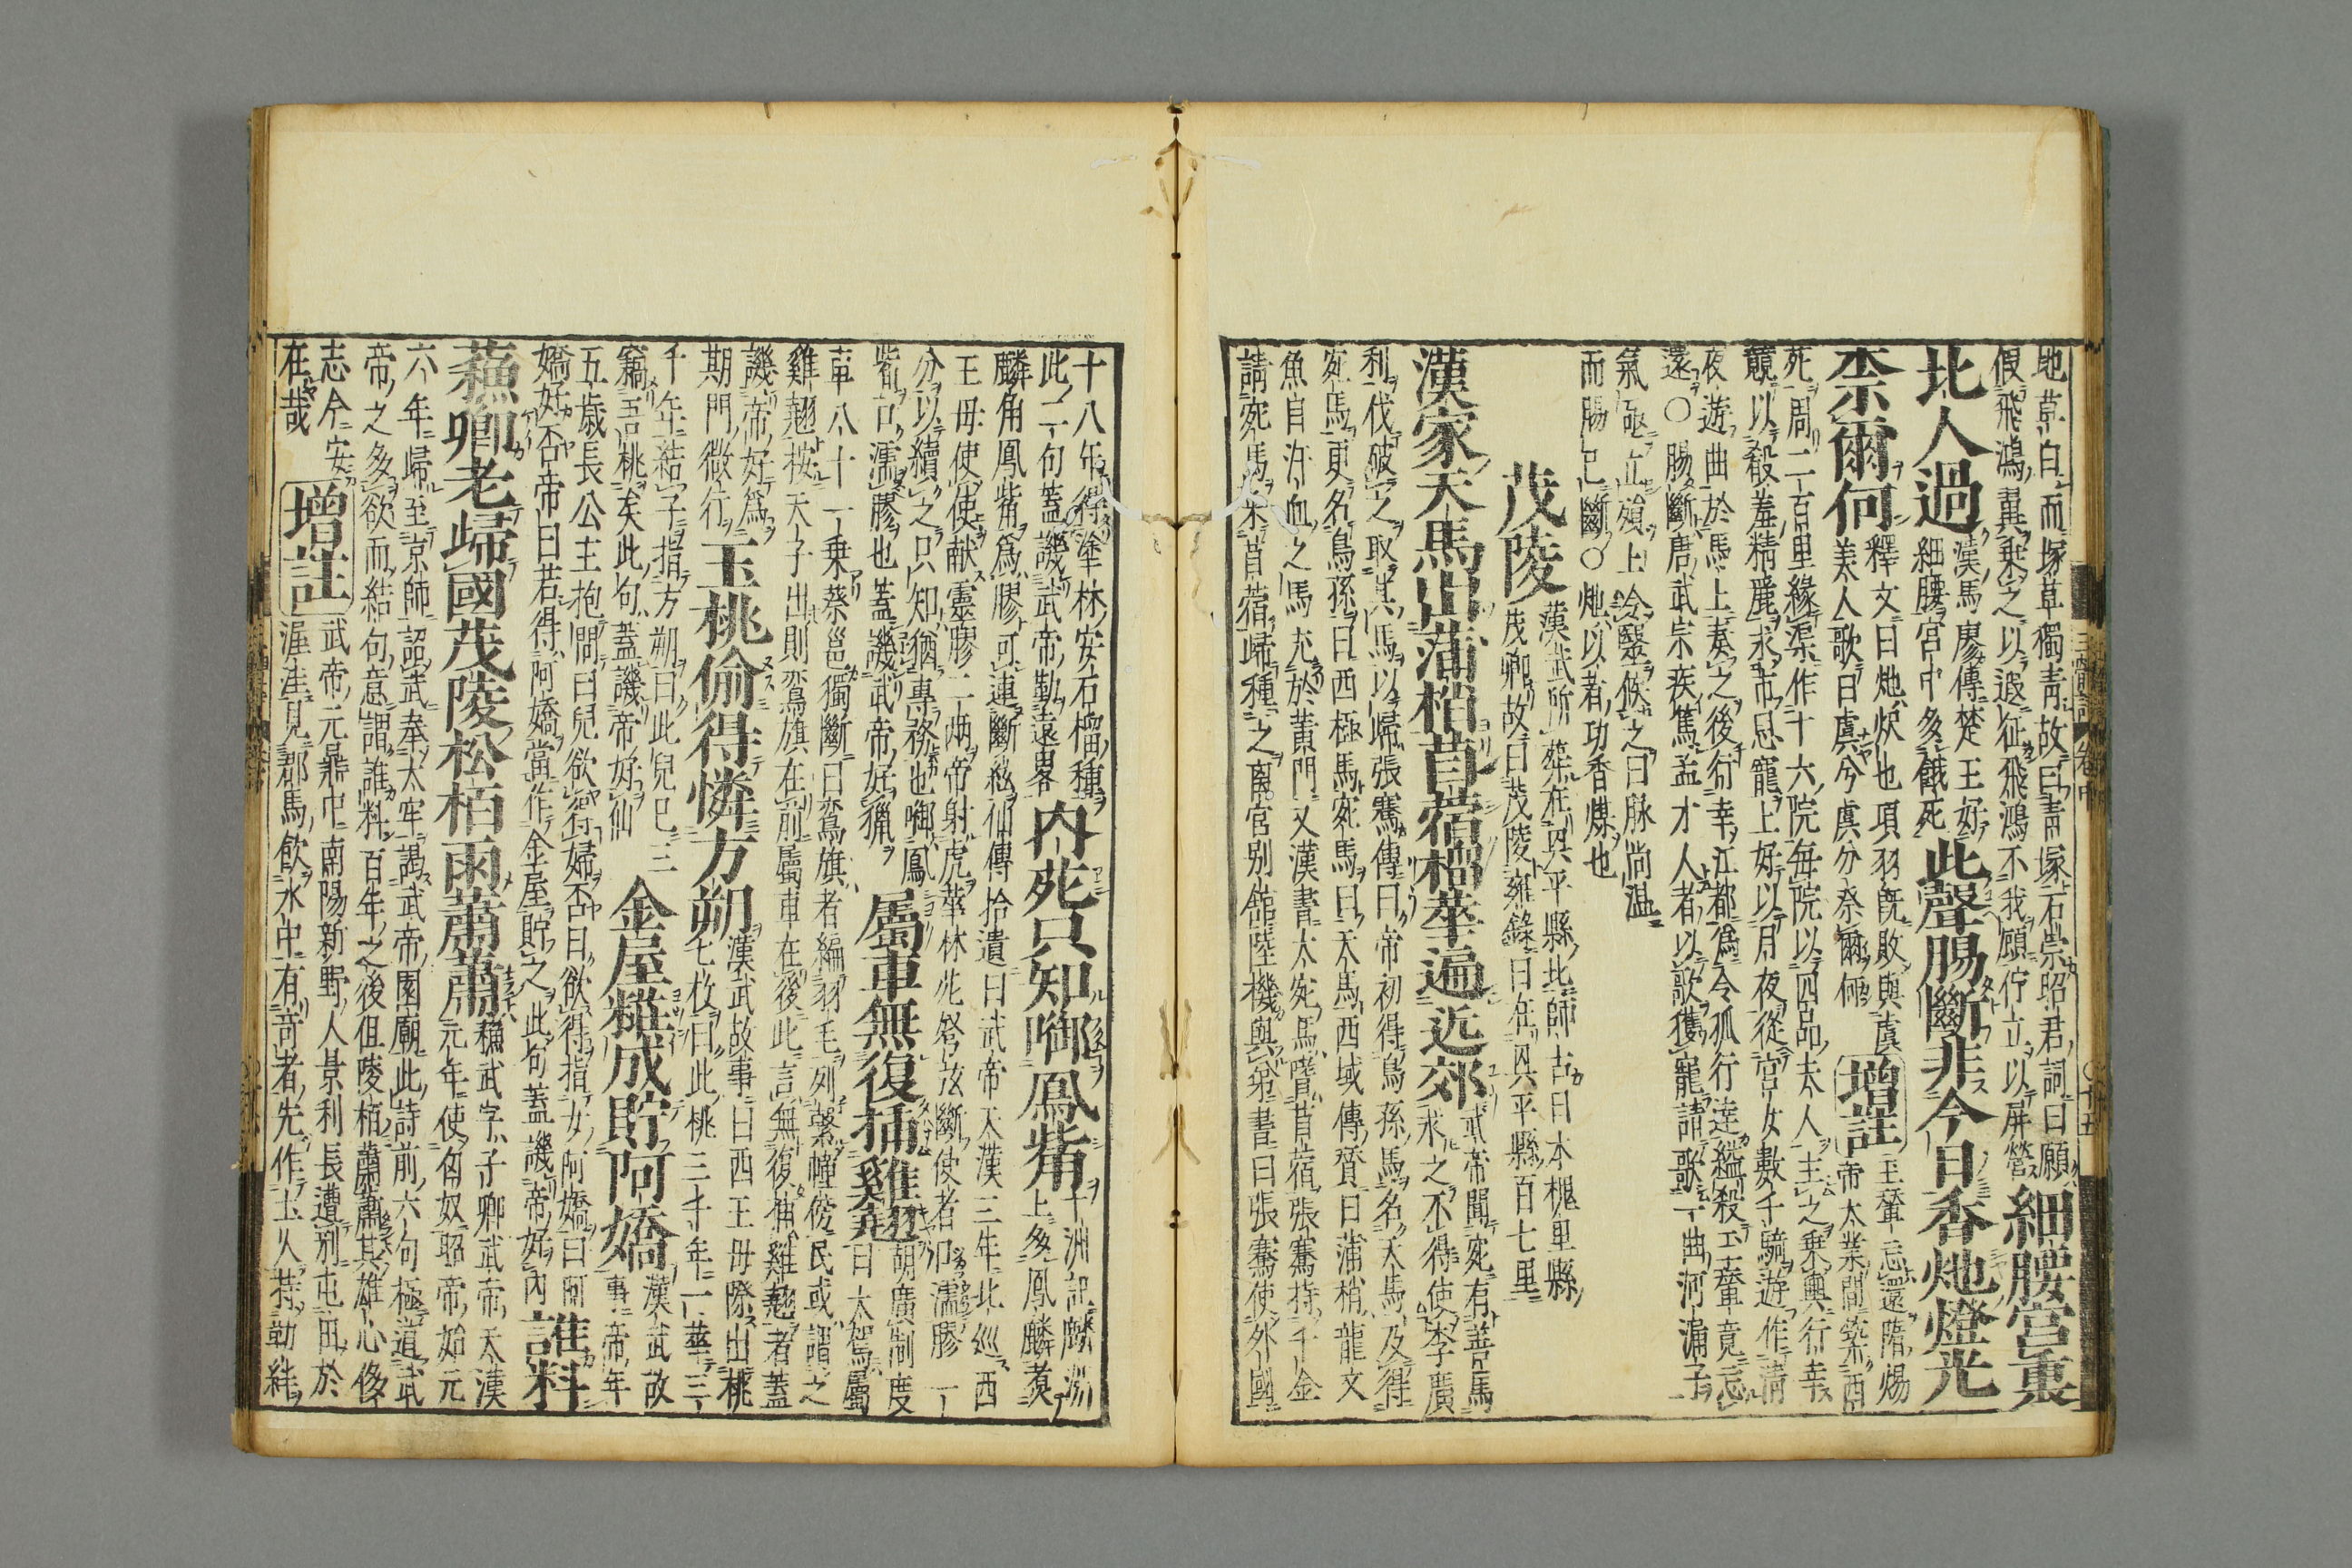 地草白而塚草獨青故曰青塚石崇昭君詞曰願
假飛鴻翼乘之以遐征飛鴻不我顧佇立以屏營
細腰宮裏
北人過
漢馬廖傳楚王好
細腰宮中多餓死
此聲腸斷非今日香灺燈光
柰爾何
釋文曰灺炉也項羽旣敗與虞
美人歌曰虞兮虞兮奈爾何
增註
王輦忘還隋煬
帝大業間築西
死周二百里緣渠作十六院每院以四品夫人主之乘輿行幸
競以殺羞精麗求市恩寵上好以月夜從宮女數千騎遊作清
夜遊曲於馬上奏之後幸江都爲令狐行達縊殺王輦竟忘
還○腸斷唐武宗疾篤孟才人者以歌獲寵請歌一曲河滿子
氣亟立殞上令醫候之曰脉尚温
而腸已斷○灺以者功香煤也
茂陵
漢武所葬在興平縣北師古曰本槐里縣
茂鄉故曰茂陵雍錄曰在興平縣百七里
漢家天馬出蒲梢苜蓿榴華遍近郊
武帝聞宛有善馬
求之不得使李廣
利伐破之取其馬以歸張騫傳曰帝初得烏孫馬名天馬及得
宛馬更名烏孫曰西極馬宛馬曰天馬西域傳贊曰蒲梢龍文
魚目汗血之馬充於黃門又漢書大宛馬嗜苜蓿張騫持千金
請宛馬采苜蓿歸種之離宮別館陸機與弟書曰張騫使外國
十八年得塗林安石榴種
此二句蓋譏武帝勤遠畧
内苑只知啣鳳觜
十洲記麟洲
上多鳳麟煑
麟角鳳觜爲膠可連斷絃仙傳拾遺曰武帝天漢三年北巡西
王母使使献靈膠二兩帝射虎華林苑弩弦斷使者用濡膠一
分以續之只知猶專務也啣鳳
觜言濡膠也蓋譏武帝好獵
屬車無復插雞翹
胡廣制度
曰大駕屬
車八十一乘蔡邕獨斷曰鸞旗者編羽毛列繋幢傍民或謂之
雞翹按天子出則鸞旗在前屬車在後此言無復插雞翹者蓋
譏帝好爲
期門微行
玉桃偷得憐方朔
漢武故事曰西王母降出桃
七枚曰此桃三千年一華三
千年結子指方朔曰此兒已三
竊吾桃矣此句蓋譏帝好仙
金屋糚成貯阿嬌
漢武故
事帝年
五歳長公主抱問曰兒欲得婦否曰欲得指女阿嬌曰阿
嬌好否帝曰若得阿嬌當作金屋貯之此句蓋譏帝好內
誰料
蘓卿老歸國茂陵松栢雨蕭蕭
蘓武字子卿武帝天漢
元年使匈奴昭帝始元
六年歸至京師詔武奉太牢謁武帝園廟此詩前六句極道武
帝之多欲而結句意謂誰料百年之後但陵栢蕭蕭其雄心侈
志今安
在哉
增註
武帝元鼎中南陽新野人景利長遭別屯田於
渥洼見郡馬飲水中有奇者先作土人持勒絆